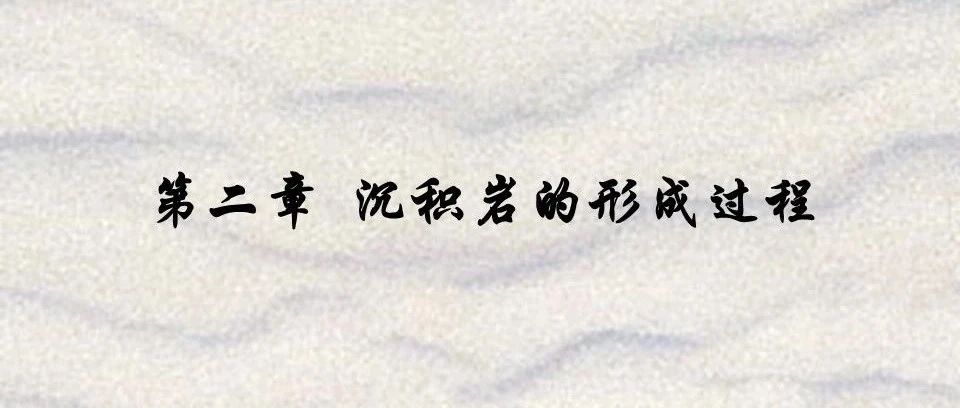 第二章 沉积岩的形成过程